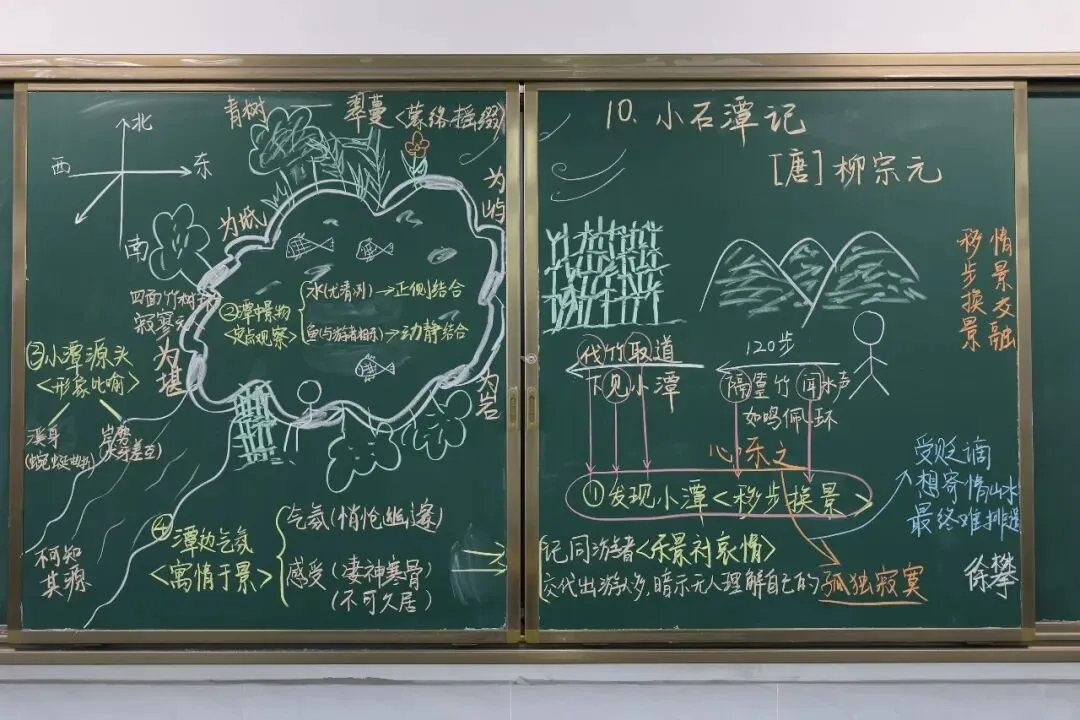 北
西
东
南
青树
翠蔓<蒙络摇缀>
为坻
为屿
四面竹树
寂寥
为堪
为岩
②潭中景物
<定点观察>
水(尤清冽)→正侧结合
鱼(与游者相乐)→动静结合
③小潭源头
<形象比喻>
溪身
岸势
犬牙差互)
不可知
其源
④潭边气氛
<寓情于景>
气氛(悄怆幽邃)
感受(凄神寒骨
(不可久居)
10、小石潭记
[唐]柳宗元
移步换景
情景交融
伐竹取道
下见小潭
120步
隔篁竹闻水声
如鸣佩环
心乐之
①发现小潭<移步换景>
受贬谪
想寄情山水
最终难排遣
记同游者<乐景衬哀情>
交代出游人多,暗示无人理解自己的孤独寂寞
徐攀